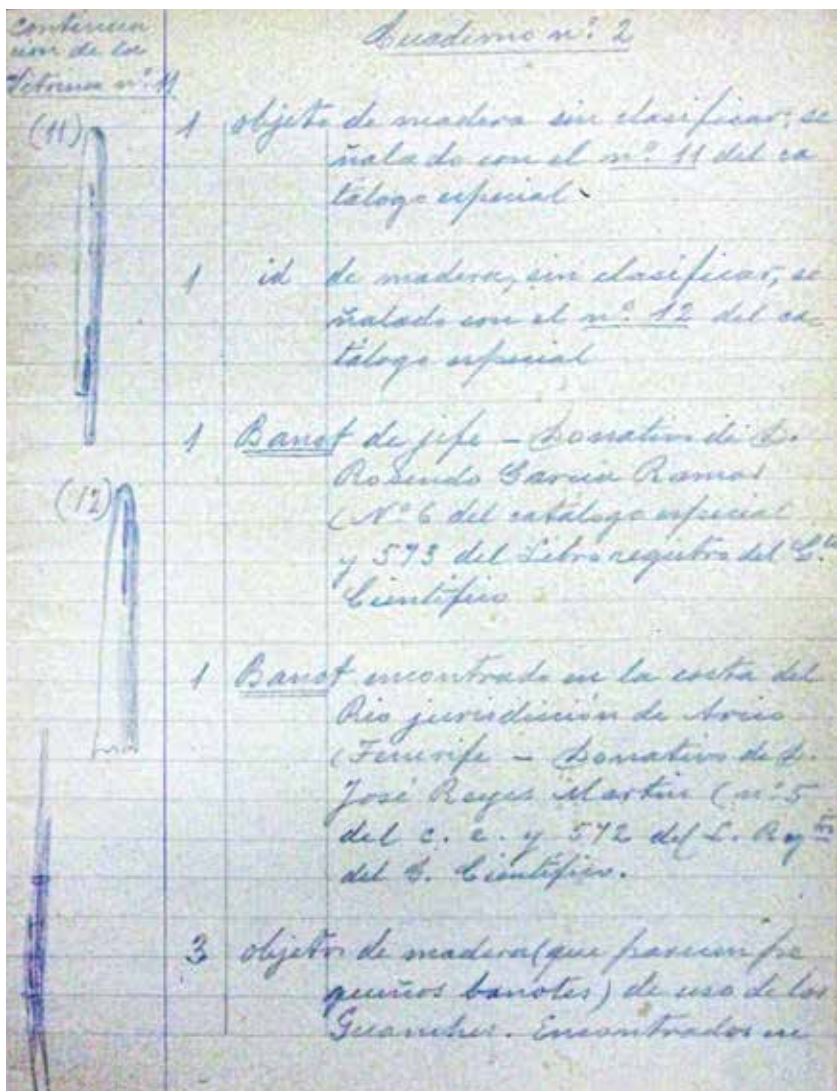 Continua
cion de la
Vitrina nº 11
Cuaderno nº 2
(11)
1 objeto de madera sin clasificar, se
ñalado con el nº 11 del ca
tálogo especial
1 id de madera, sin clasificar, se
ñalado con el nº 12 del ca-
tálogo especial
1 Banot de jefe – Donativo de D.
Rosendo Garcia Ramos
(Nº 6 del catálogo especial
y 573 del Libro registro del G.
Cientifico
(12)
1 Banot encontrado en la costa del
Rio jurisdicción de Arico
(Tenerife – Donativo de D.
José Reyes Martin (nº 5
del c. e. y 572 del L. Reg
del G. Científico.
3 objetos de madera (que parecen pe
queños banotes) de uso de los
Guanches. Encontrados en